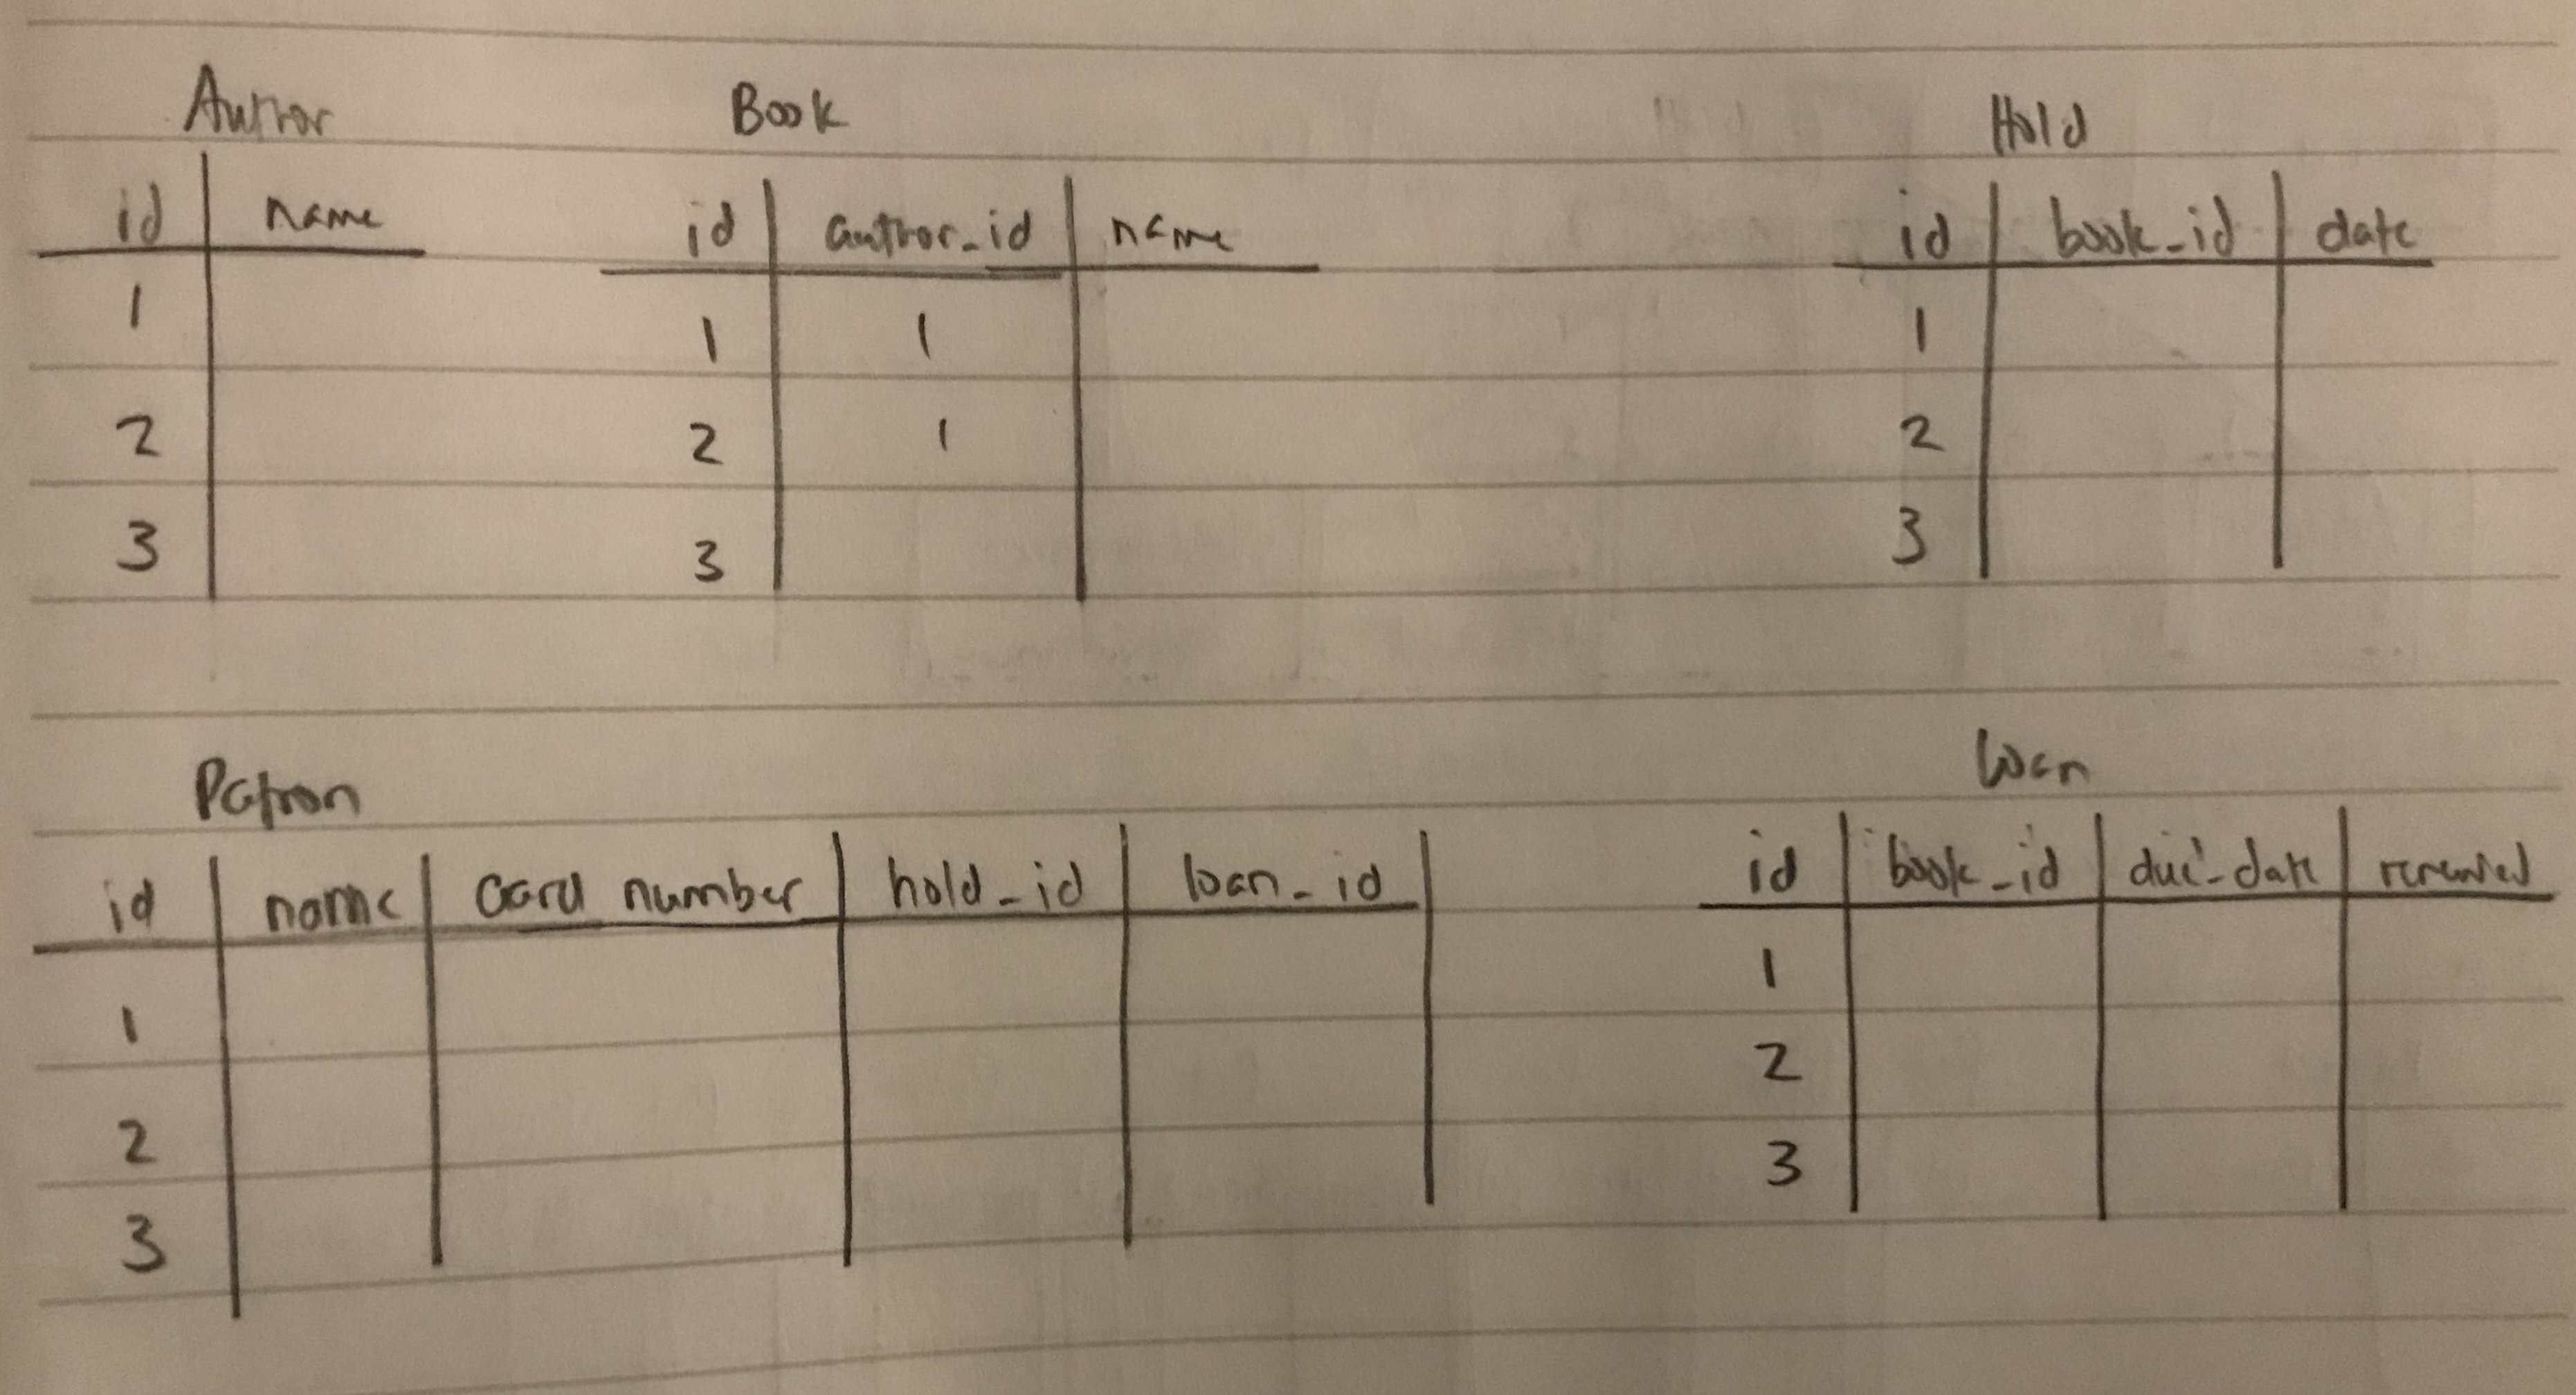 Author
id name
1
2
3
Book
id author_id name
1 1
2 1
3
Hold
id book_id date
1
2
3
Patron
id name card number hold_id loan_id
1
2
3
Loan
id book_id due_date renewed
1
2
3